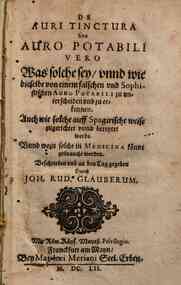 DE
AURI TINCTURA
Sive
AURO POTABILI
VERO
Was solche sey/ vnnd wie
dieselbe von einem falschen vnd Sophi-
stischen AURO POTABILI zu un-
terscheiden vnd zu er-
kennen.
Auch wie solche auff Spagirische weise
zugerichtet vnnd bereytet
werde.
Vnnd wozu solche in MEDICINA könne
gebraucht werden.
Beschrieben vnd an den Tag gegeben
Durch
JOH. RUD. GLAUBERUM.
Mit Röm. Käys. Mayest. Privilegio.
Franckfurt am Mayn/
Bey Matthæi Meriani Seel. Erben.
M. DC. LII.